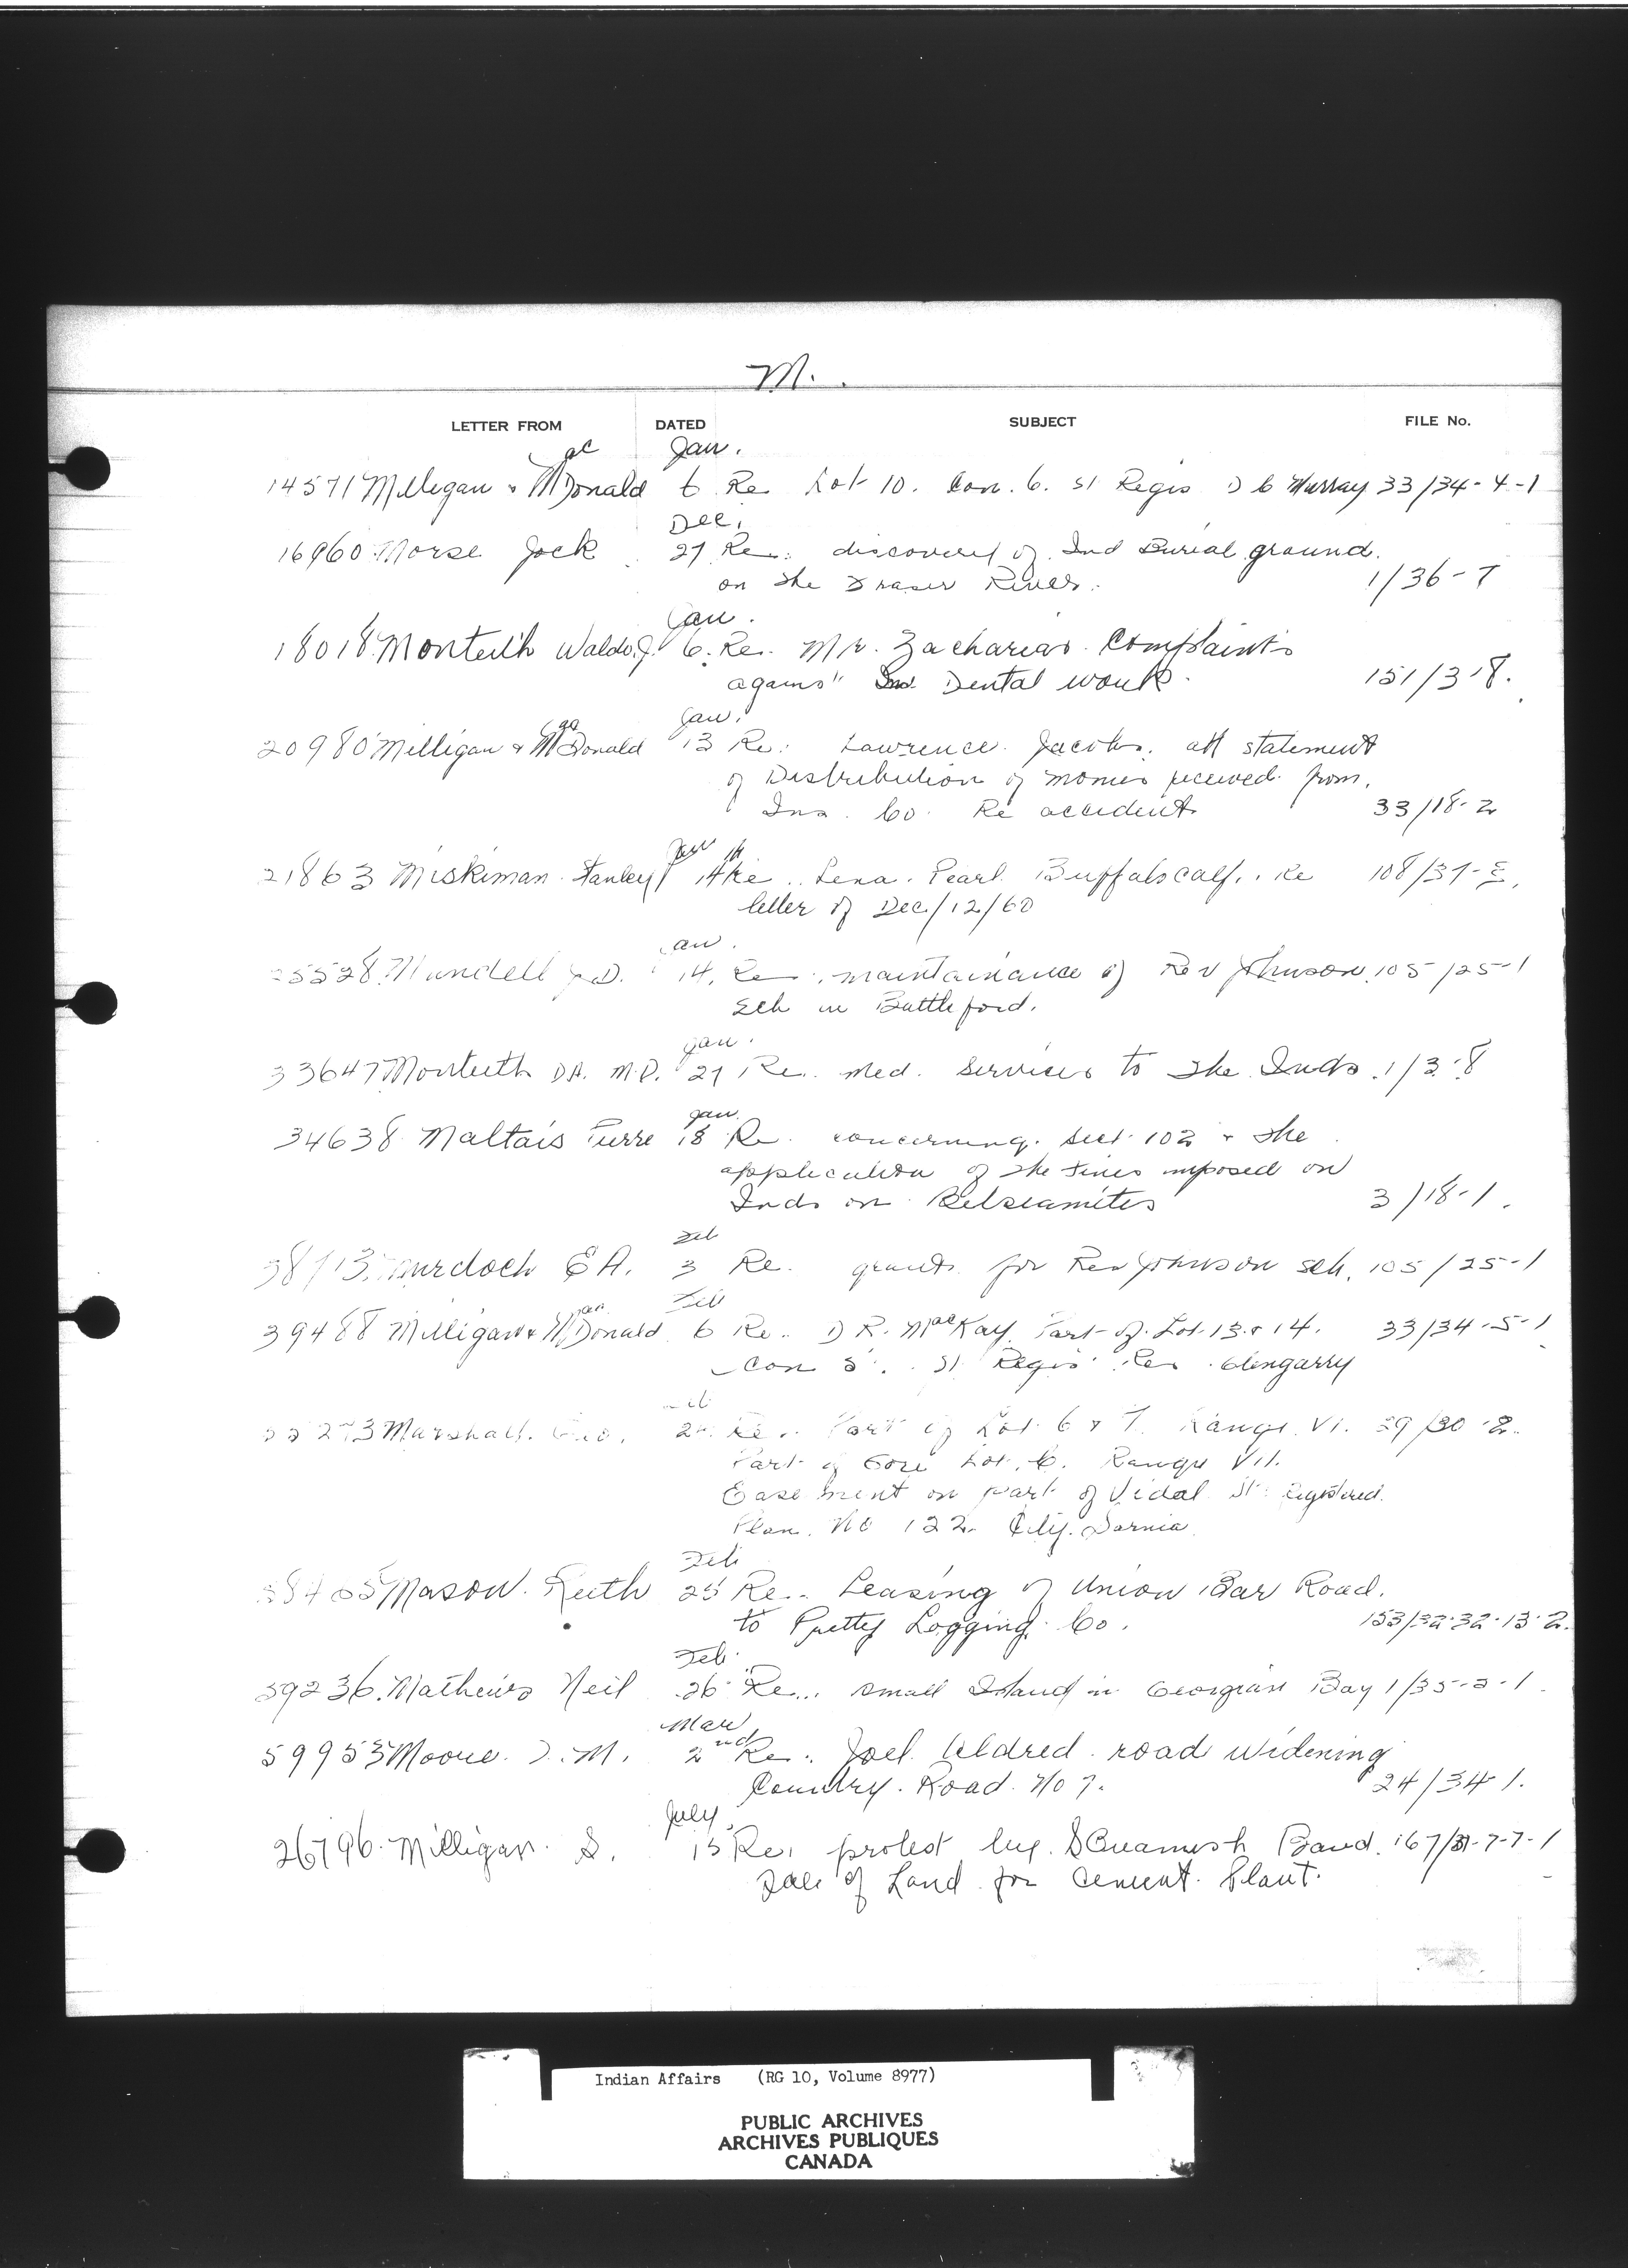 M.
LETTER FROM DATED SUBJECT FILE No.
Jan.
14571 Milligan & MacDonald 6 Re Lot 10. Con. 6. St Regis D C Murray 33/34-4-1
Dec.
16960 Morse Jock 27 Re: discovery of Ind Burial ground.
on the Fraser River. 1/36-7
Jan.
18018 Monteith Waldo J. 6. Re. Mr. Zacharias Complaints
against Ind Dental work. 151/3-8.
Jan.
20980 Milligan & MacDonald 13 Re: Lawrence Jacobs. att statement
of Distribution of monies received from.
Ins. Co. Re accident. 33/18-2
Jan
21863 Miskiman Stanley Re. Lena. Pearl Buffalocalf. Re 108/37-
letter of Dec/12/60
Jan.
Mundell 14. Re. maintainance of Rev Johnson. 105/25-1
Sch in Battleford.
Jan.
33647 Monteith DA. M.D. 27 Re. Med. Services to the Inds. 1/3-8
Jan.
34638 Maltais Pierre 18 Re. concerning. Sect. 102 & the
application of the fines imposed on
Inds on Betsiamites 3/18-1.
Feb
Murdoch E A. 3 Re. grants for Rev Johnson Sch. 105/25-1
Feb
39488 Milligan & MacDonald 6 Re. D R. MacKay. Part of Lot 13 & 14. 33/34-5-1
Con 5. St Regis Res. Glengarry
Marshall. Geo. Re. Part of Lot 6 & 7. Range VI. 29/30-2.
Part of Gore Lot. Range VII.
Easement on part of Vidal St. Registered.
Plan. No 122. City. Sarnia.
Feb
Mason. Keith 25 Re. Leasing of Union Bar Road.
to Pretty Logging Co. 153/32-32-13-2.
Feb.
59236. Mathews Neil 26 Re... small Island in Georgian Bay 1/35-2-1.
Mar
59953 Moore. M. 2nd Re. Joel Aldred. road widening
Country. Road. No 7. 24/34-1.
July
26796. Milligan. S. 15 Re. protest by. SQuamish Band. 167/31-7-7-1
Sale of Land for Cement. Plant.
Indian Affairs (RG 10, Volume 8977)
PUBLIC ARCHIVES
ARCHIVES PUBLIQUES
CANADA